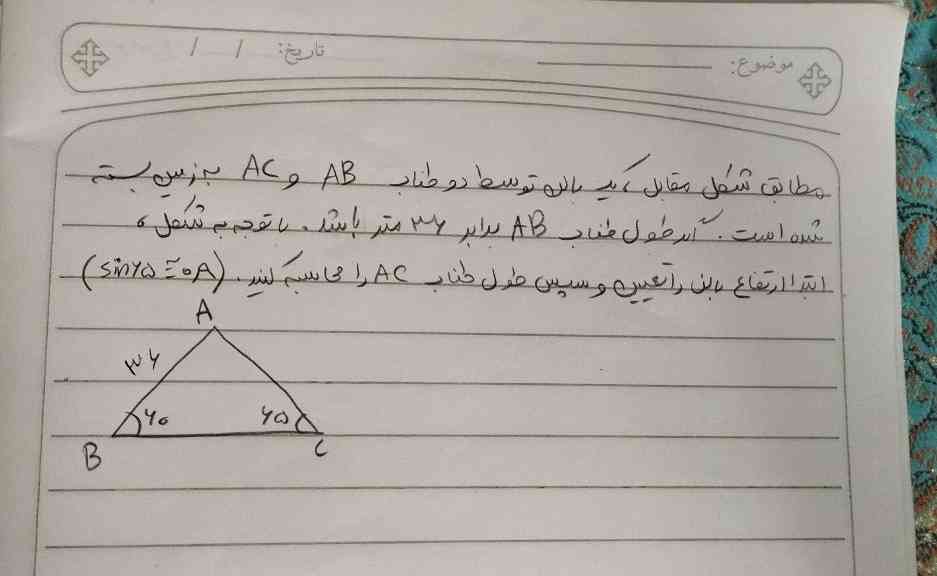 موضوع:
تاریخ: / /
مطابق شکل مقابل، یک بالن توسط دو طناب AB و AC به زمین بسته
شده است. اگر طول طناب AB برابر ۳۶ متر باشد. با توجه به شکل،
ابتدا ارتفاع بالن را تعیین و سپس طول طناب AC را محاسبه کنید. (sin۷۵ ≅ ۰٫۸)
A
۳۶
۶۰ ۷۵
B C